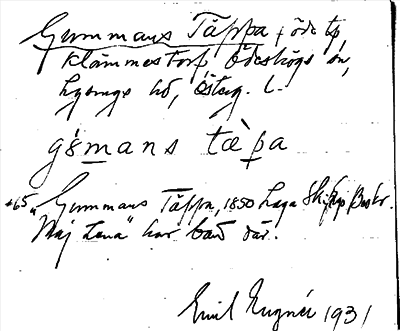 Gummans Täppa, öde tp
Klämmestorp Ödeshögs sn,
Lysings hd, Österg. l.
gs̀mans tæ̀pa
Gummans Täppa, 1850 Laga Sk,
"Maj Lena" har bott där.
Emil Eugnér 1931